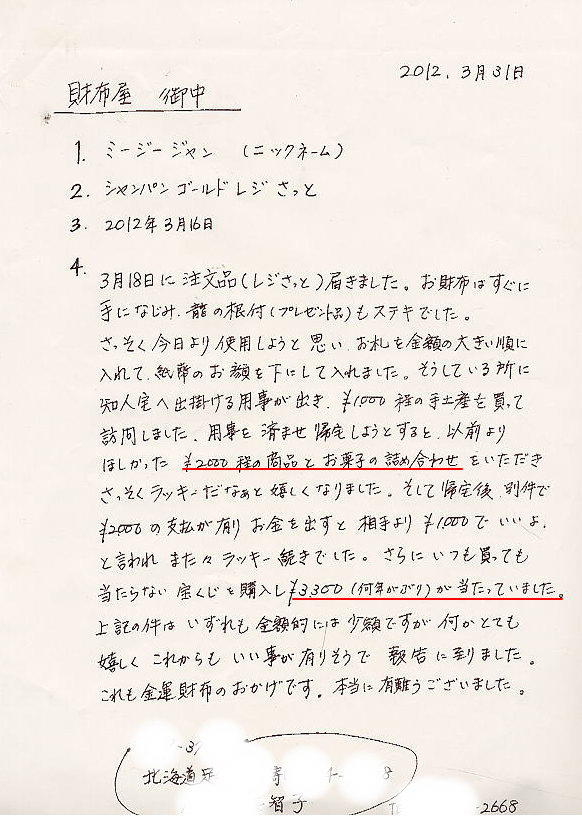 2012.3月31日
財布屋 御中
1. ミージージャン (ニックネーム)
2. シャンパンゴールドレジさっと
3. 2012年3月16日
4.
3月18日に注文品(レジさっと)届きました。お財布はすぐに
手になじみ、龍の根付(プレゼント品)もステキでした。
さっそく今日より使用しようと思い、お札を金額の大きい順に
入れて、紙幣のお顔を下にして入れました。そうしている所に
知人宅へ出掛ける用事が出き、¥1,000程の手土産を買って
訪問しました。用事を済ませ帰宅しようとすると、以前より
ほしかった ¥2000程の商品とお菓子の詰め合わせをいただき
さっそくラッキーだなぁと嬉しくなりました。そして帰宅後、別件で
¥2000の支払が有りお金を出すと相手より¥1,000でいいよ、
と言われまた々ラッキー続きでした。さらにいつも買っても
当たらない宝くじを購入し¥3,300(何年がぶり)が当たっていました。
上記の件はいずれも金額的には少額ですが何かとても
嬉しくこれからもいい事が有りそうで報告に至りました。
これも金運財布のおかげです。本当に有難うございました。
-3
北海道 8
智子 -2668